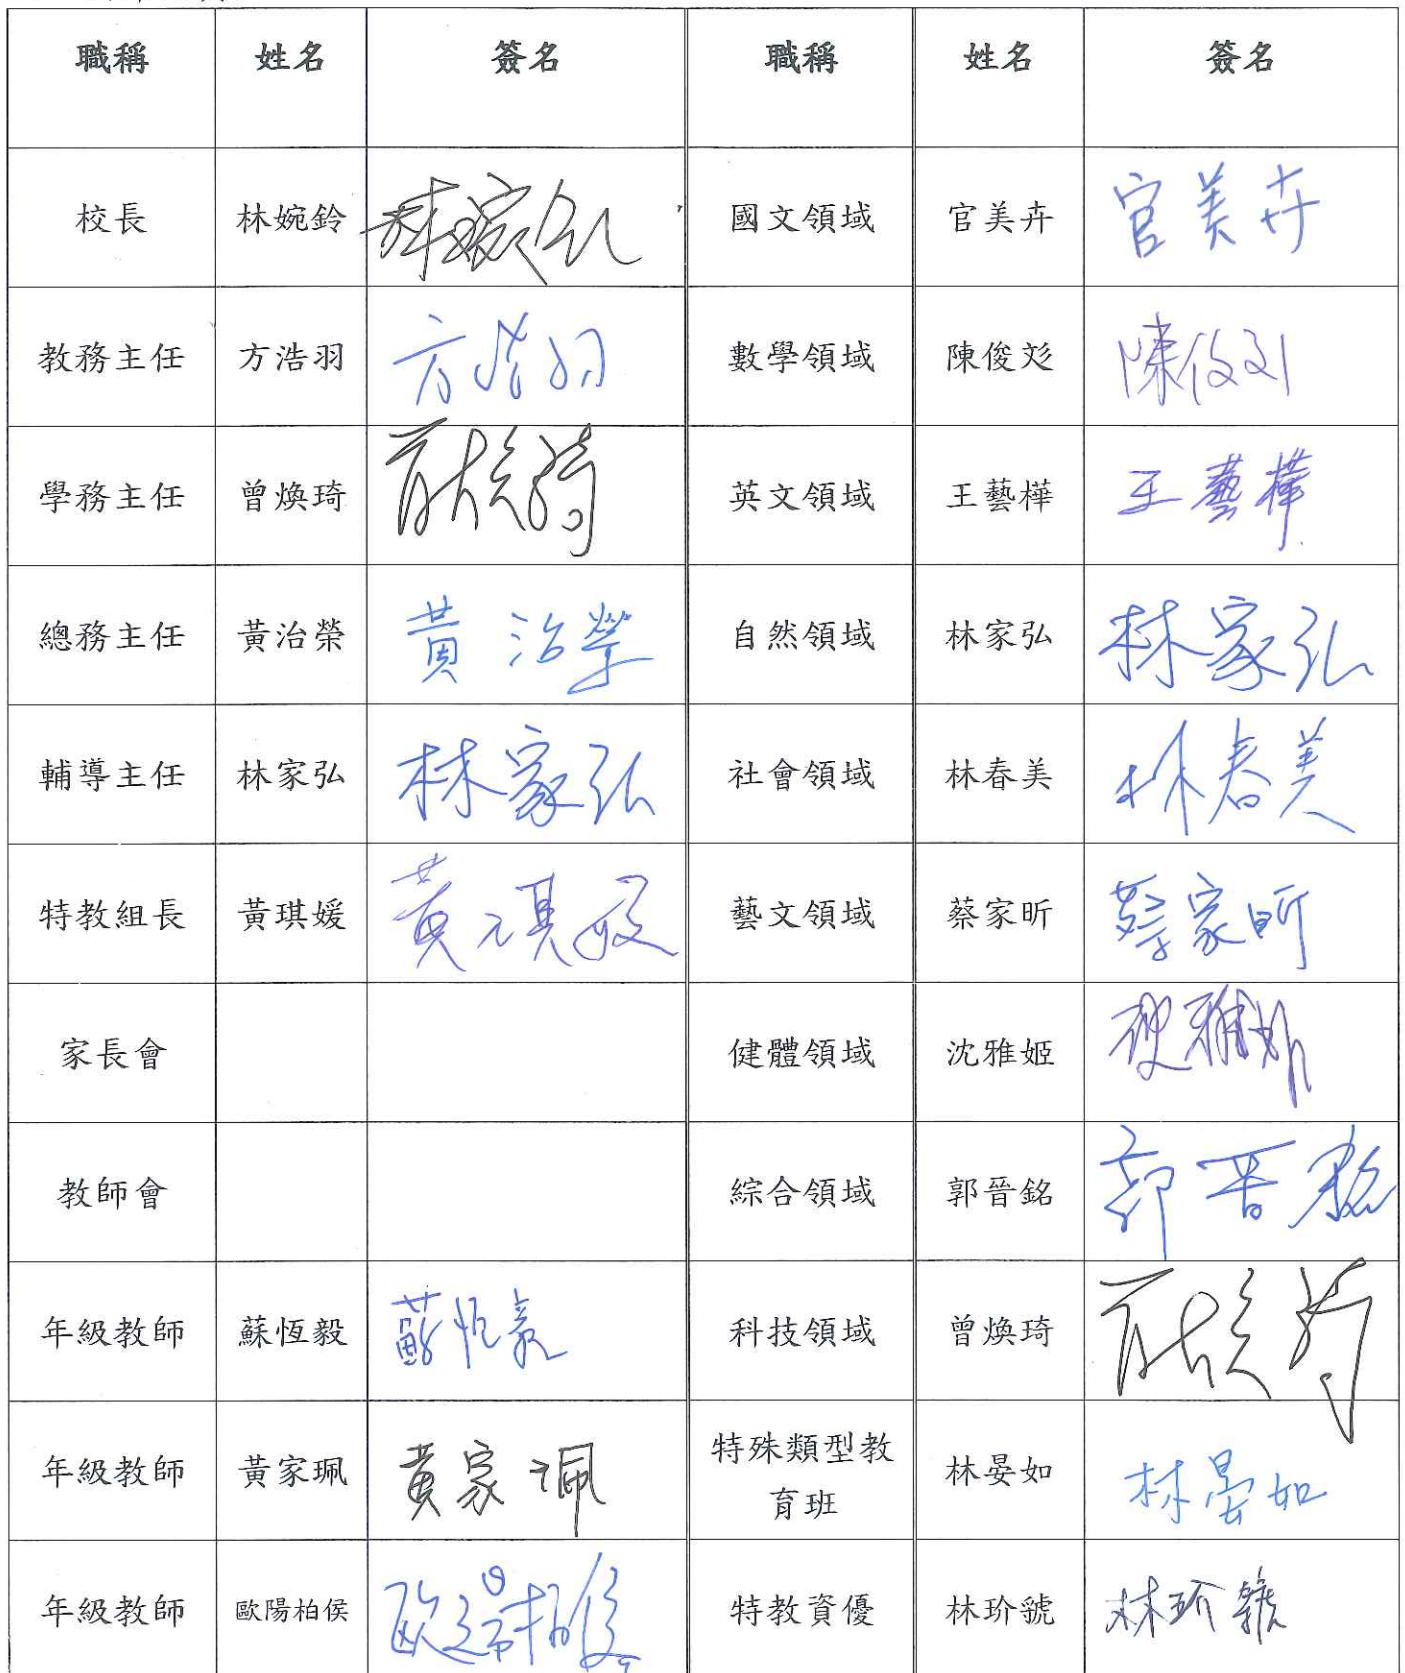 職稱 姓名 簽名 職稱 姓名 簽名
校長 林婉鈴 林婉鈴 國文領域 官美卉 官美卉
教務主任 方浩羽 方浩羽 數學領域 陳俊彣 陳俊彣
學務主任 曾煥琦 曾煥琦 英文領域 王藝樺 王藝樺
總務主任 黃治榮 黃治榮 自然領域 林家弘 林家弘
輔導主任 林家弘 林家弘 社會領域 林春美 林春美
特教組長 黃琪媛 黃琪媛 藝文領域 蔡家昕 蔡家昕
家長會 健體領域 沈雅姬 沈雅姬
教師會 綜合領域 郭晉銘 郭晉銘
年級教師 蘇恆毅 蘇恆毅 科技領域 曾煥琦 曾煥琦
年級教師 黃家珮 黃家珮 特殊類型教 林晏如 林晏如
育班
年級教師 歐陽柏侯 歐陽柏侯 特教資優 林玠號 林玠號